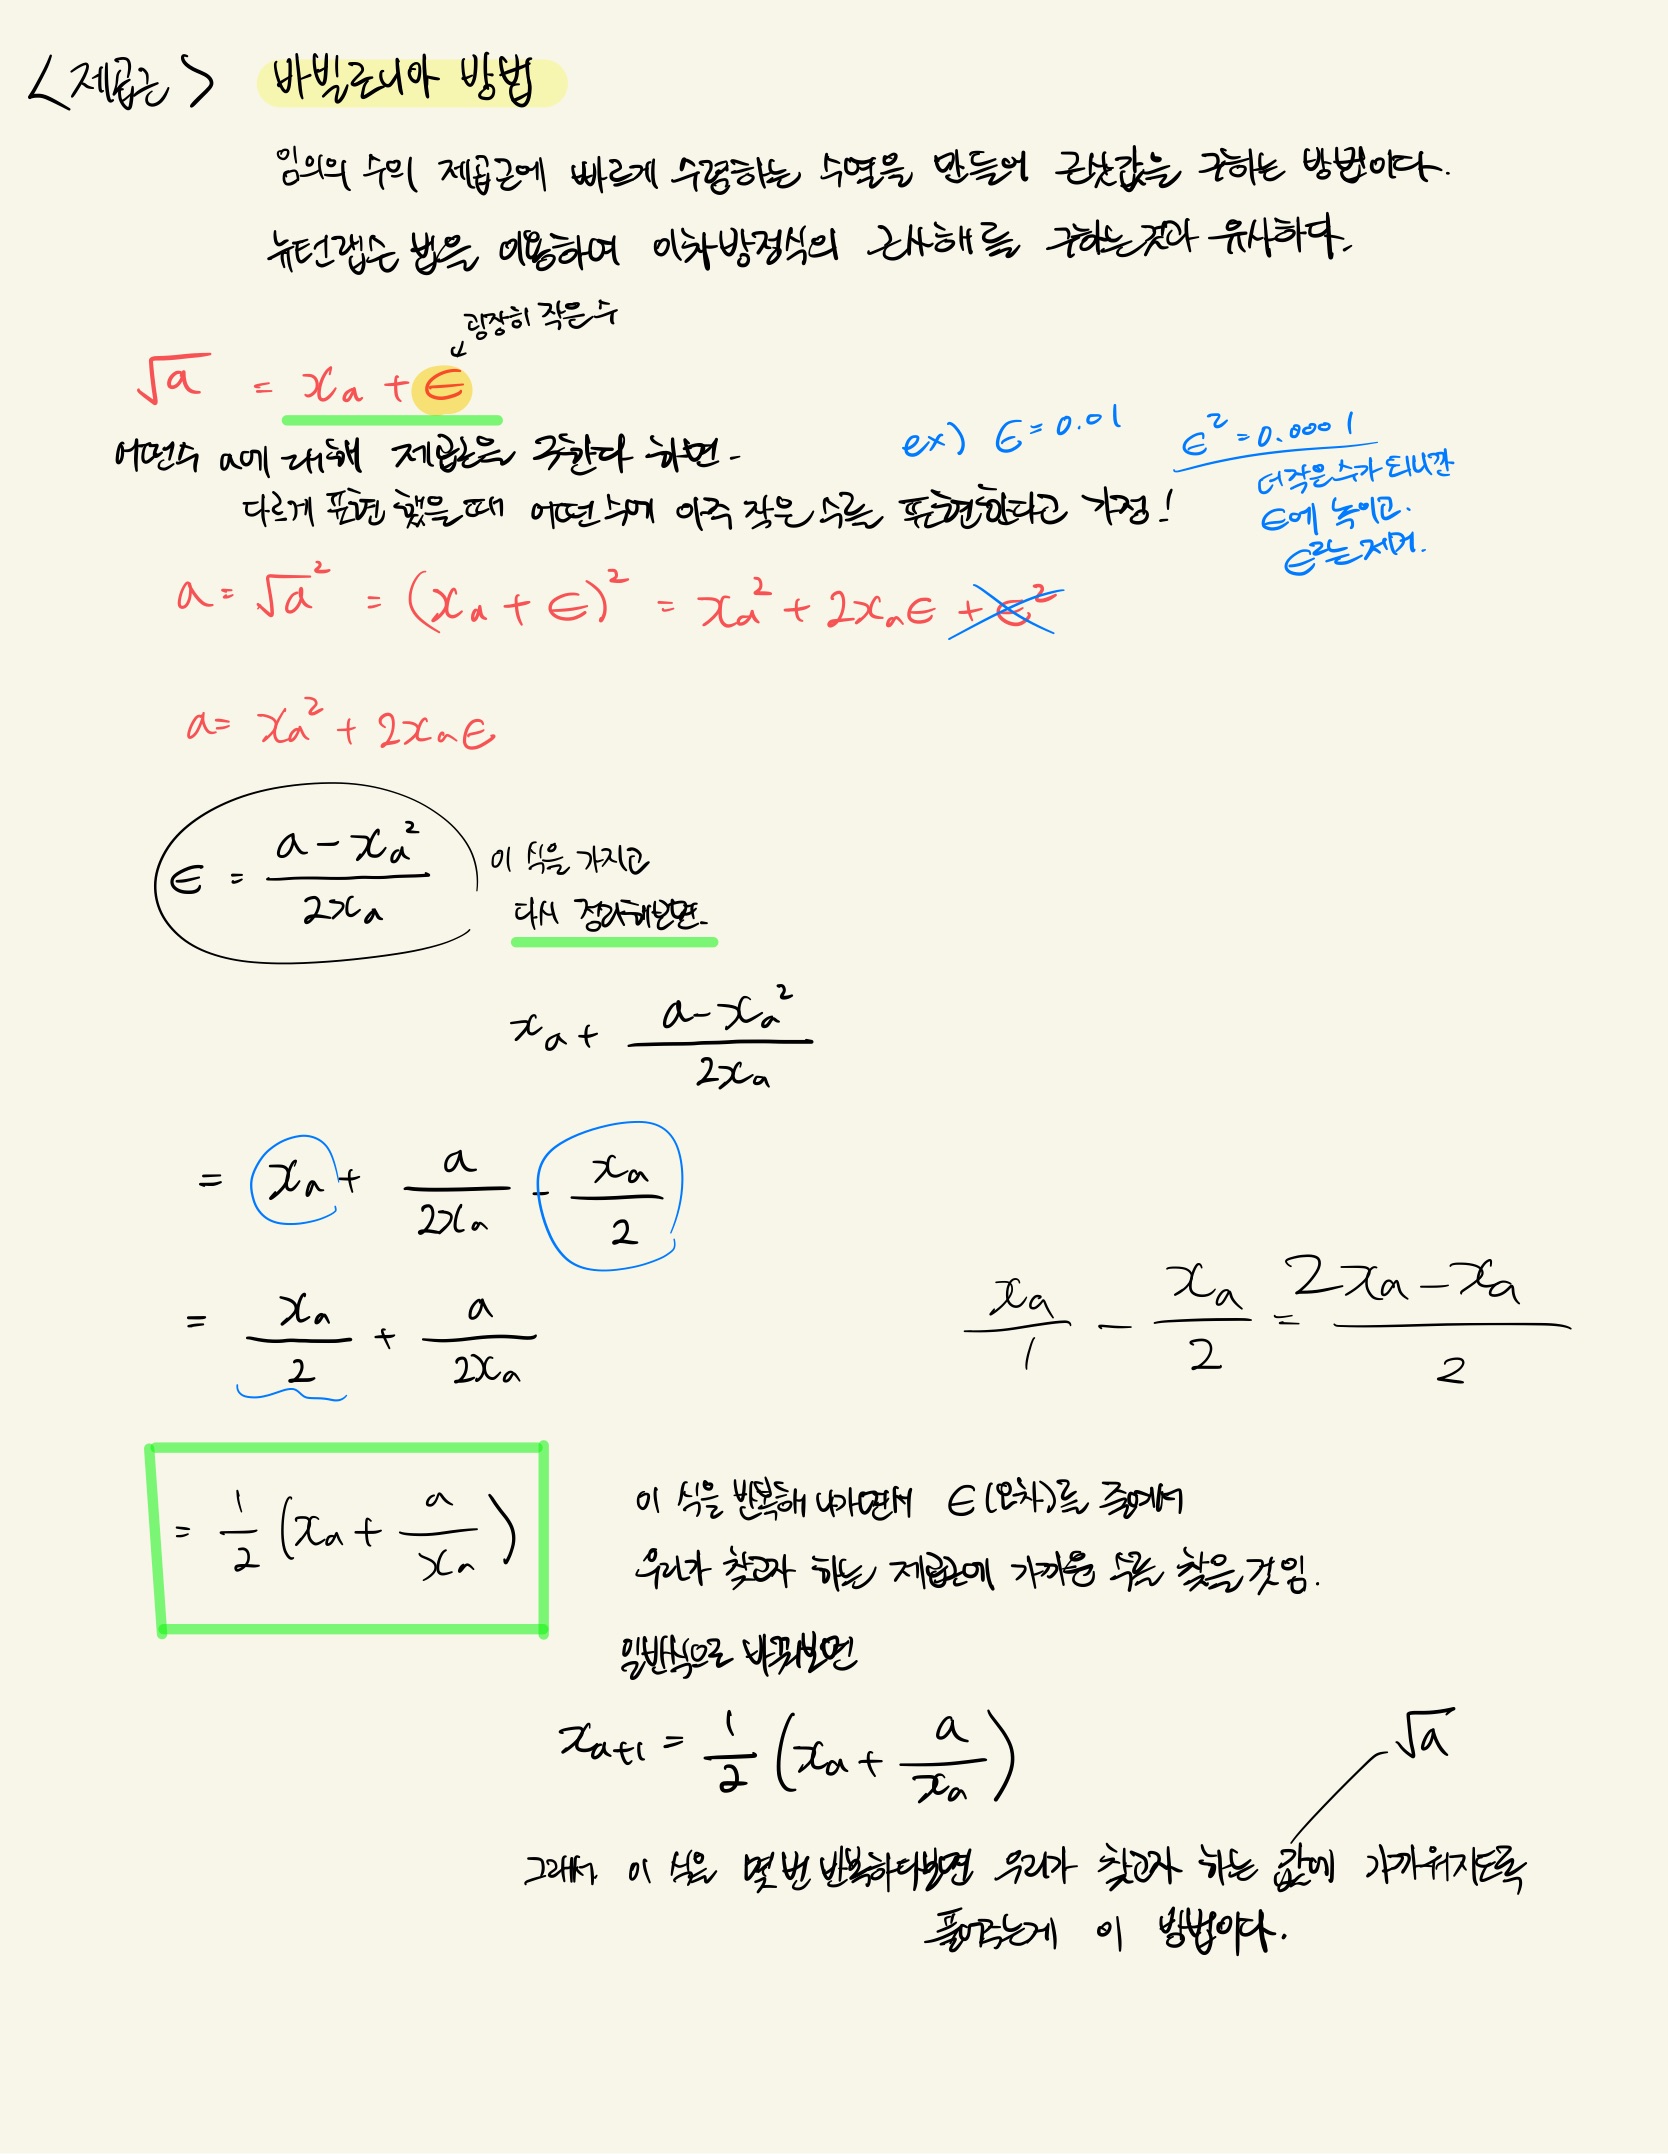 <제곱근> 바빌로니아 방법
임의의 수의 제곱근에 빠르게 수렴하는 수열을 만들어 근삿값을 구하는 방법이다.
뉴턴랩슨 법을 이용하여 이차방정식의 근사해를 구하는것과 유사하다.
굉장히 작은수
√a = xₐ + ϵ
어떤수 a에 대해 제곱근을 구한다 하면.
ex) ϵ = 0.01 ϵ² = 0.0001
더 작은 수가 되니깐
ϵ에 녹이고.
ϵ²는 제거.
다르게 표현 했을 때 어떤 수에 아주 작은 수를 표현한다고 가정!
a = √a² = (xₐ + ϵ)² = xₐ² + 2xₐϵ + ϵ²
a = xₐ² + 2xₐϵ
ϵ = (a - xₐ²) / 2xₐ 이 식을 가지고
다시 정리해보면.
xₐ + (a - xₐ²) / 2xₐ
= xₐ + a / 2xₐ - xₐ / 2
= xₐ / 2 + a / 2xₐ
xₐ / 1 - xₐ / 2 = (2xₐ - xₐ) / 2
= 1/2 (xₐ + a / xₐ)
이 식을 반복해 나가면서 ϵ(오차)를 줄여서
우리가 찾고자 하는 제곱근에 가까운 수를 찾을 것임.
일반식으로 바꿔보면
xₐ₊₁ = 1/2 (xₐ + a / xₐ)
√a
그래서 이 식을 몇 번 반복하다보면 우리가 찾고자 하는 값에 가까워지도록
풀어주는게 이 방법이다.